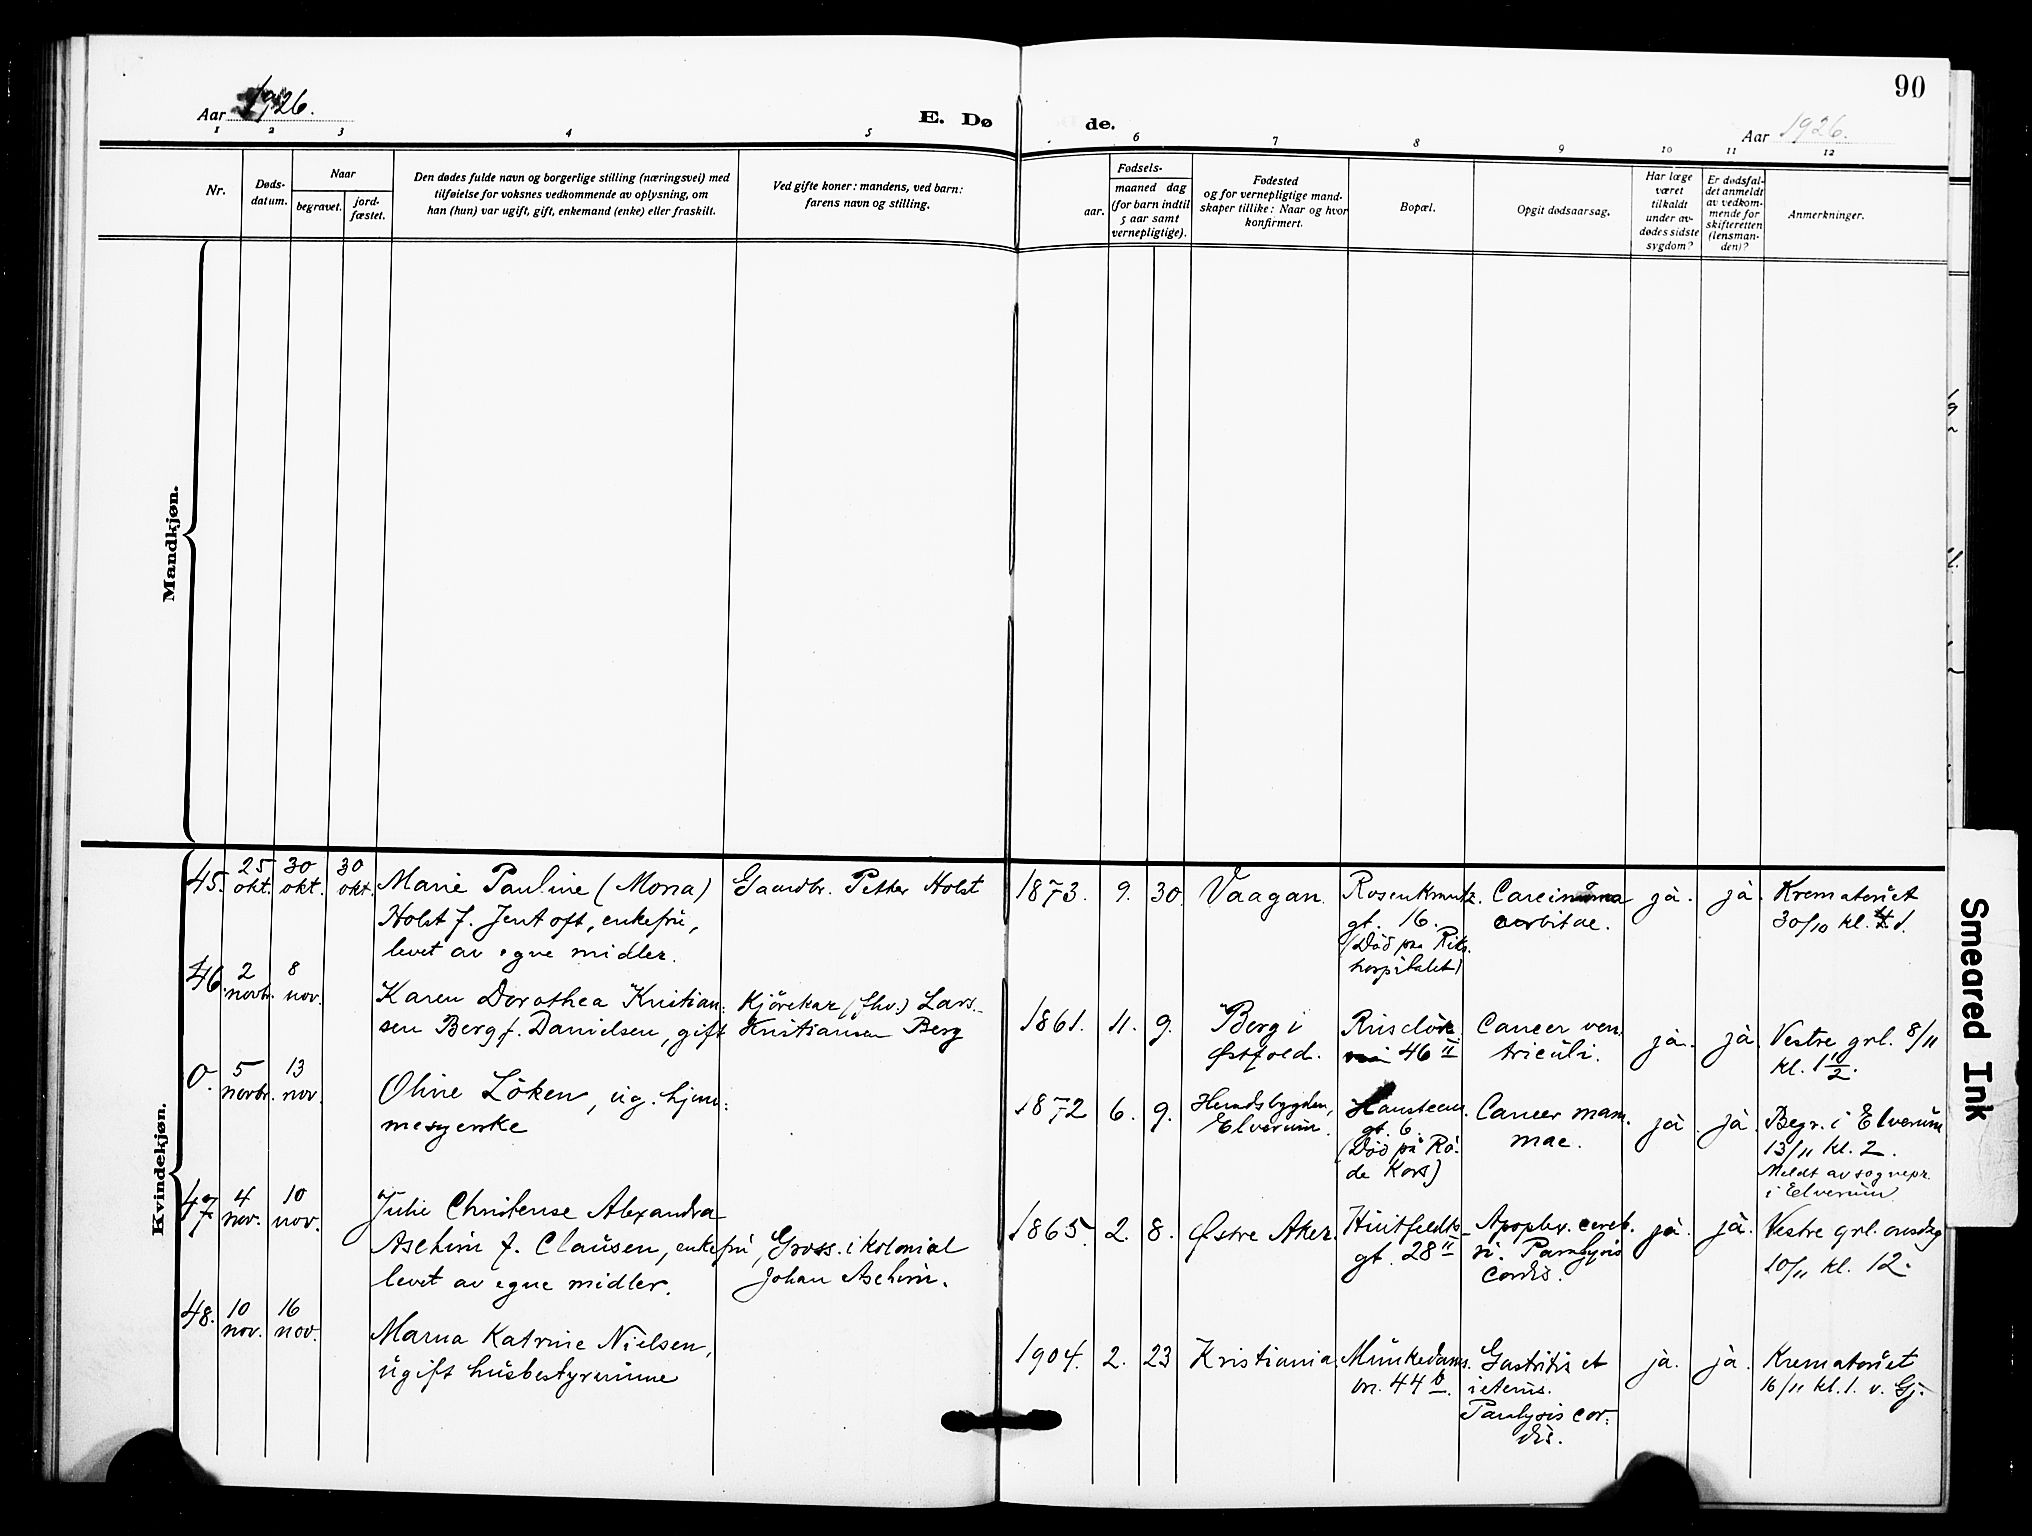 90
Aar 1926.
E. Dø de.
Aar 1926.
1 2 3 4 5 6 7 8 9 10 11 12
Nr.
Døds-
datum.
Naar
begravet.
jord-
fæstet.
Den dødes fulde navn og borgerlige stilling (næringsvei) med
tilføielse for voksnes vedkommende av oplysning, om
han (hun) var ugift, gift, enkemand (enke) eller fraskilt.
Ved gifte koner: mandens, ved barn:
farens navn og stilling.
Fødsels-
aar.
maaned dag
(for barn indtil
5 aar samt
vernepligtige).
Fødested
og for vernepligtige mand-
skaper tillike: Naar og hvor
konfirmert.
Bopæl.
Opgit dødsaarsag.
Har læge
været
tilkaldt
under av-
dødes sidste
sygdom?
Er dødsfal-
det anmeldt
av vedkom-
mende for
skifteretten
(lensman-
den)?
Anmerkninger.
Mandkjøn.
Kvindekjøn.
45.
25
okt.
30
okt.
30
okt.
Marie Pauline (Mona)
Holst f. Jentoft, enkefru,
levet av egne midler.
Gaardbr. Petter Holst
1873. 9. 30. Vaagan.
Rosenkrantz.
gt. 16.
(Död paa Riks.
hospitalet)
Carcinoma
orbitae.
ja. ja.
Krematoriet
30/10 kl. 1.
46.
2
novbr.
8
nov.
Karen Dorothea Kristian-
sen Berg f. Danielsen, gift
Kjörekar (Ehv.) Lars
Kristiansen Berg
1861. 11. 9.
Berg i
Østfold.
46 II
Cancer ven
triculi.
ja. ja.
Vestre grl. 8/11
kl. 1 1/2.
0.
5
novbr.
13
nov.
Oline Löken, ug. hjem-
mesyerske
1872 6. 9.
Hernadsbygden,
Elverum.
Hansteens
gt. 6.
(Död på Rö-
de Kors)
Cancer mam
mae.
ja. ja.
Begr. i Elverum
13/11 kl. 2.
Meldt av sognepr.
i Elverum.
47
4
nov.
10
nov.
Julie Christense Alexandra
Aschim f. Clausen, enkefru,
levet av egne midler.
Gross. i kolonial
Johan Aschim.
1865. 2. 8. Østre Aker.
Huitfeldts-
gt. 28 II
Apoplex. cereb-
ri. Paralysis
Cordis.
ja. ja.
Vestre grl. onsdag
10/11 kl. 12.
48.
10
nov.
16
nov.
Marna Katrine Nielsen,
ugift husbestyrerinne
1904. 2. 23 Kristiania
Munkedams.
vn. 44 b.
Gastritis et
icterus.
Paralysis cor-
dis.
ja. ja.
Krematoriet
16/11 kl. 1. v. Gj.
Smeared Ink